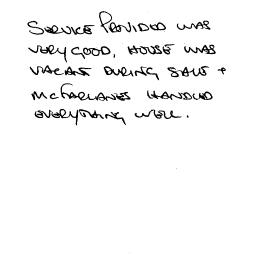 SERVICE PROVIDED WAS
VERY GOOD, HOUSE WAS
VACANT DURING SALE +
MCFARLANES HANDLED
EVERYTHING WELL.